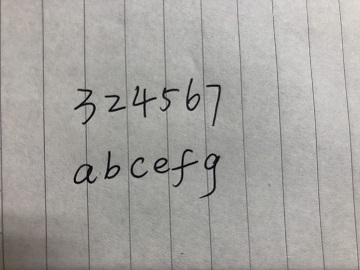 324567
abcefg